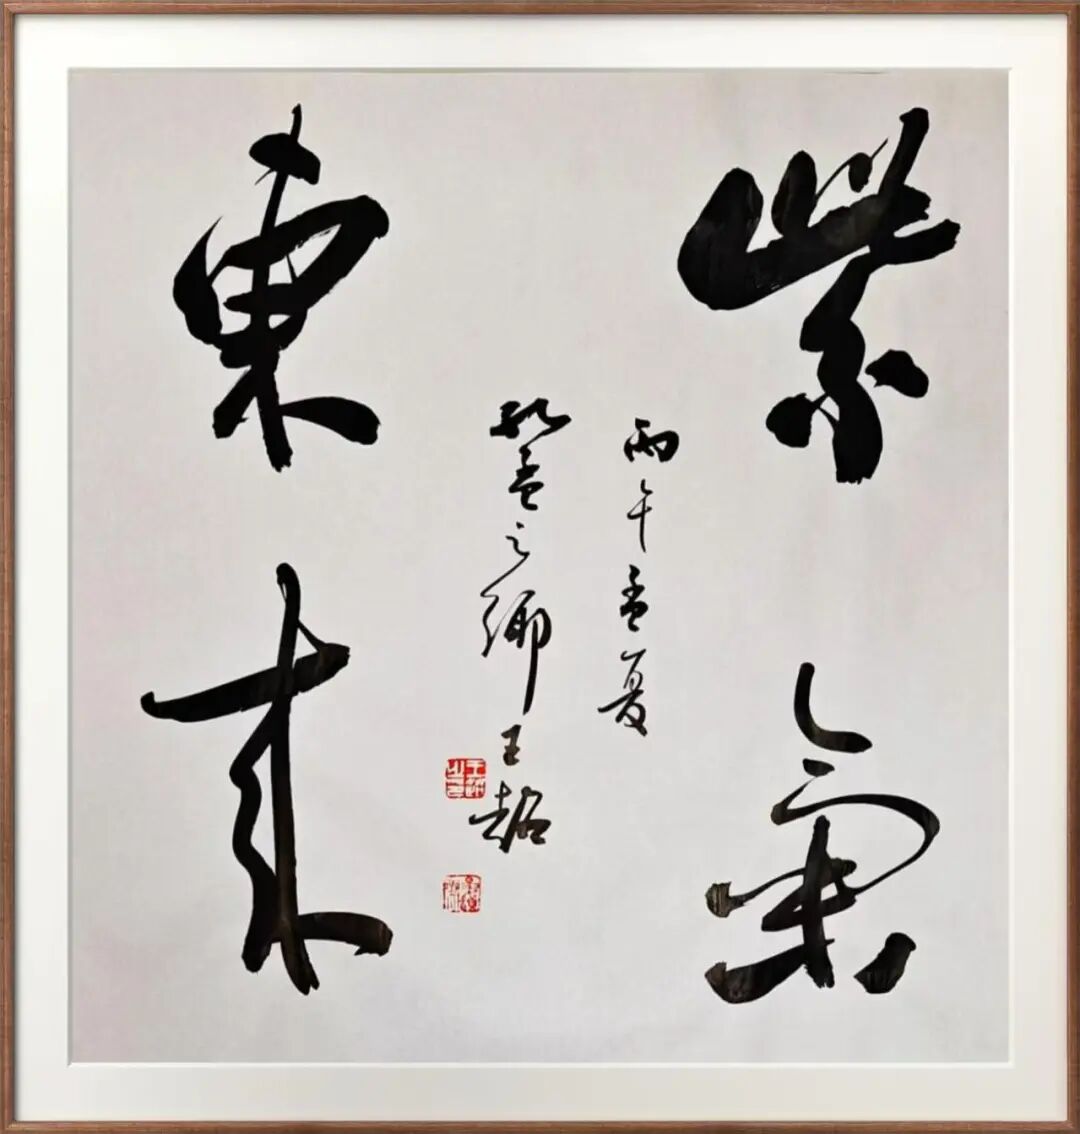 紫氣
東來
丙午孟夏
孔孟之鄉王超